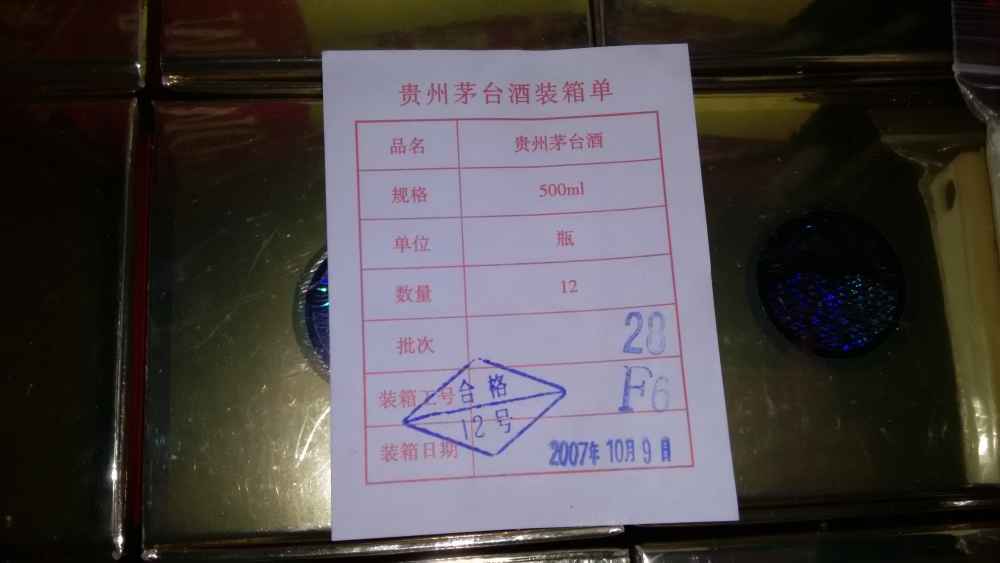 贵州茅台酒装箱单
品名 贵州茅台酒
规格 500ml
单位 瓶
数量 12
批次 28
装箱工号 F6
合格
12号
装箱日期 2007年10月9日